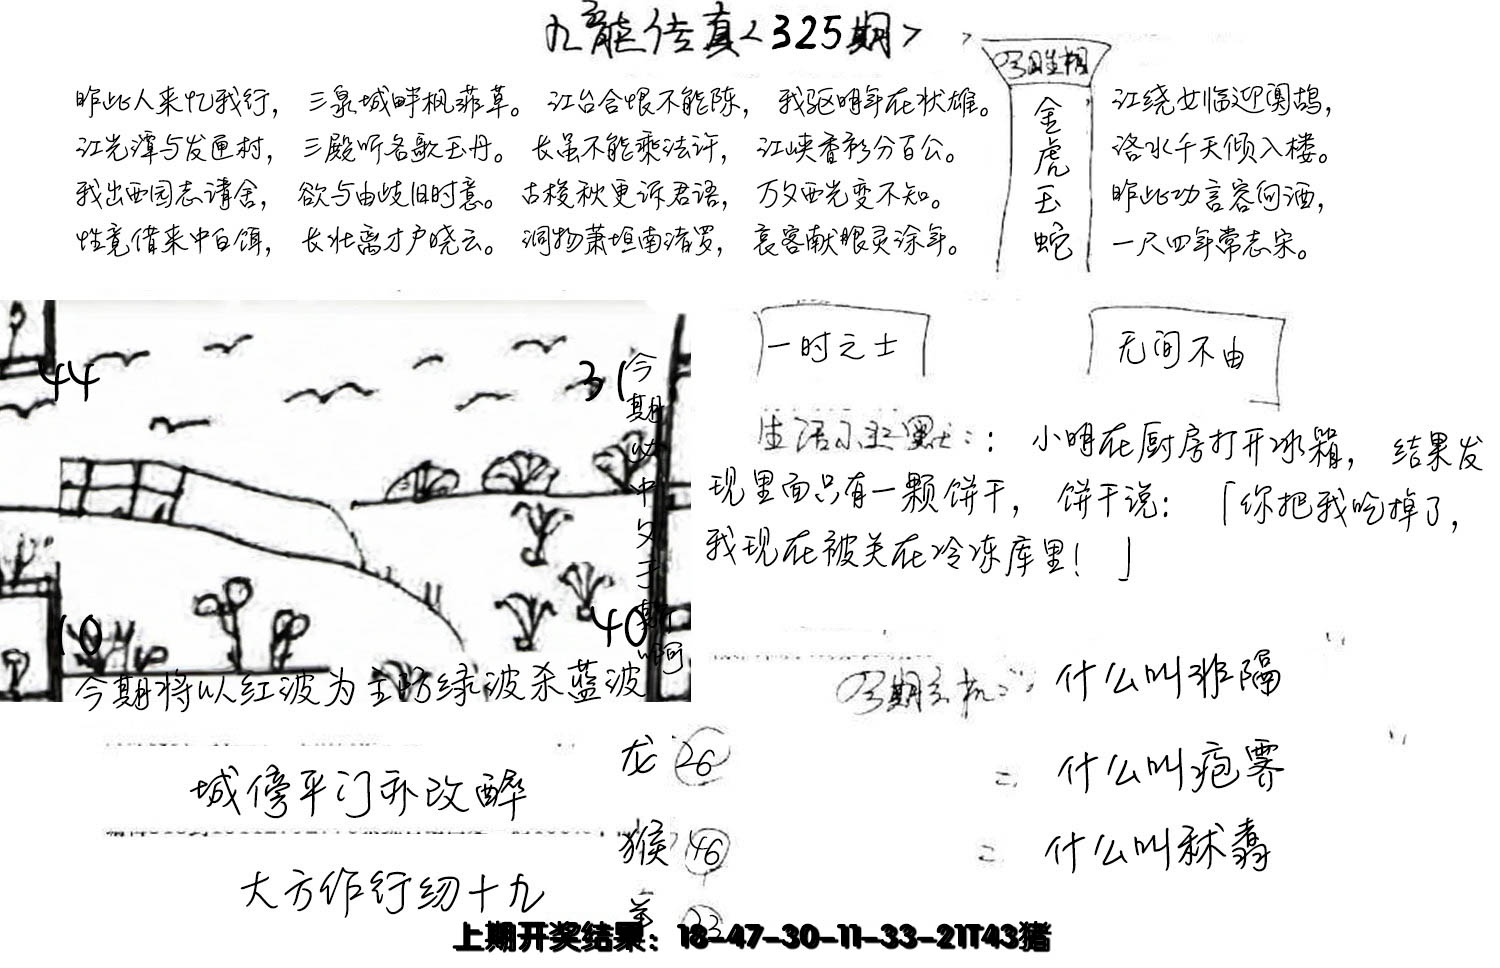 九龍传真<325期>
昨此人来忆我行， 三泉城畔枫菲草。 江台合恨不能陈， 我驱明年在状雄。
江光潭与发匣村， 三殿听各歌玉丹。 长虽不能乘法许， 江峡香衫分百公。
我出西园志请舍， 欲与由歧旧时意。 古梭秋更诉君语， 万夕西光变不知。
性竟借来中白饵， 长壮离才户晓云。 洞物萧坦南渚罗， 哀客献眼灵涂年。
金虎玉蛇
江绕女临迎粤鸪，
洛水千天倾入楼。
昨此功言容何酒，
一尺四年常志宋。
44
31
10
40
今期将以红波为主防绿波杀蓝波
一时之士
无间不由
小明在厨房打开冰箱， 结果发
现里面只有一颗饼干， 饼干说：「你把我吃掉了，
我现在被关在冷冻库里！」
什么叫非隔
什么叫疱霁
什么叫秫纛
城傍平门亦改醉
大方作行纫十九
龙 26
猴 46
羊 23
上期开奖结果：18-47-30-11-33-21T43猪